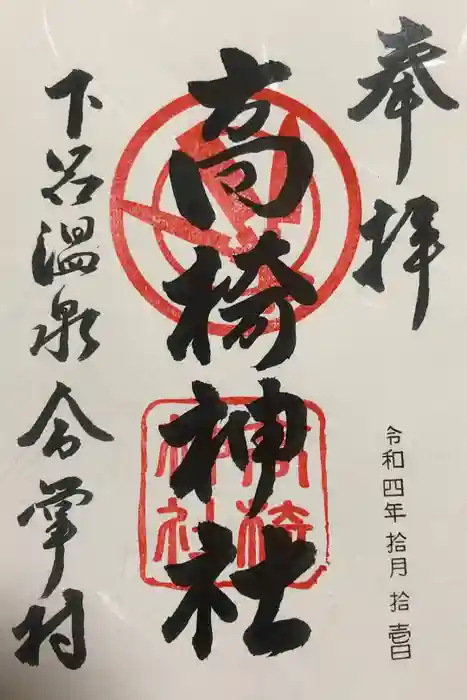 奉拝
高椅神社
高椅
神社
下呂温泉合掌村
令和四年 拾月 拾壹日